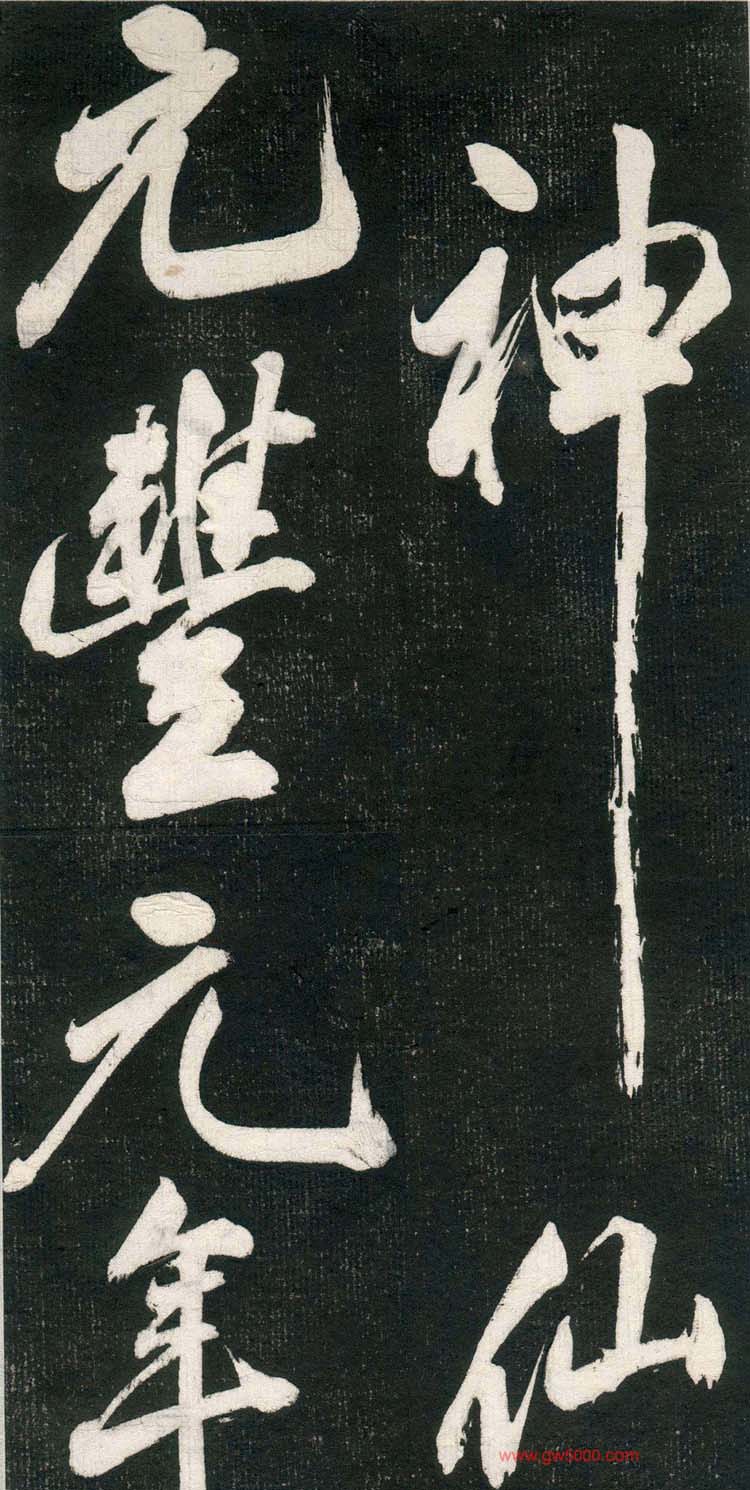 神仙
元豐元年
www.gw5000.com